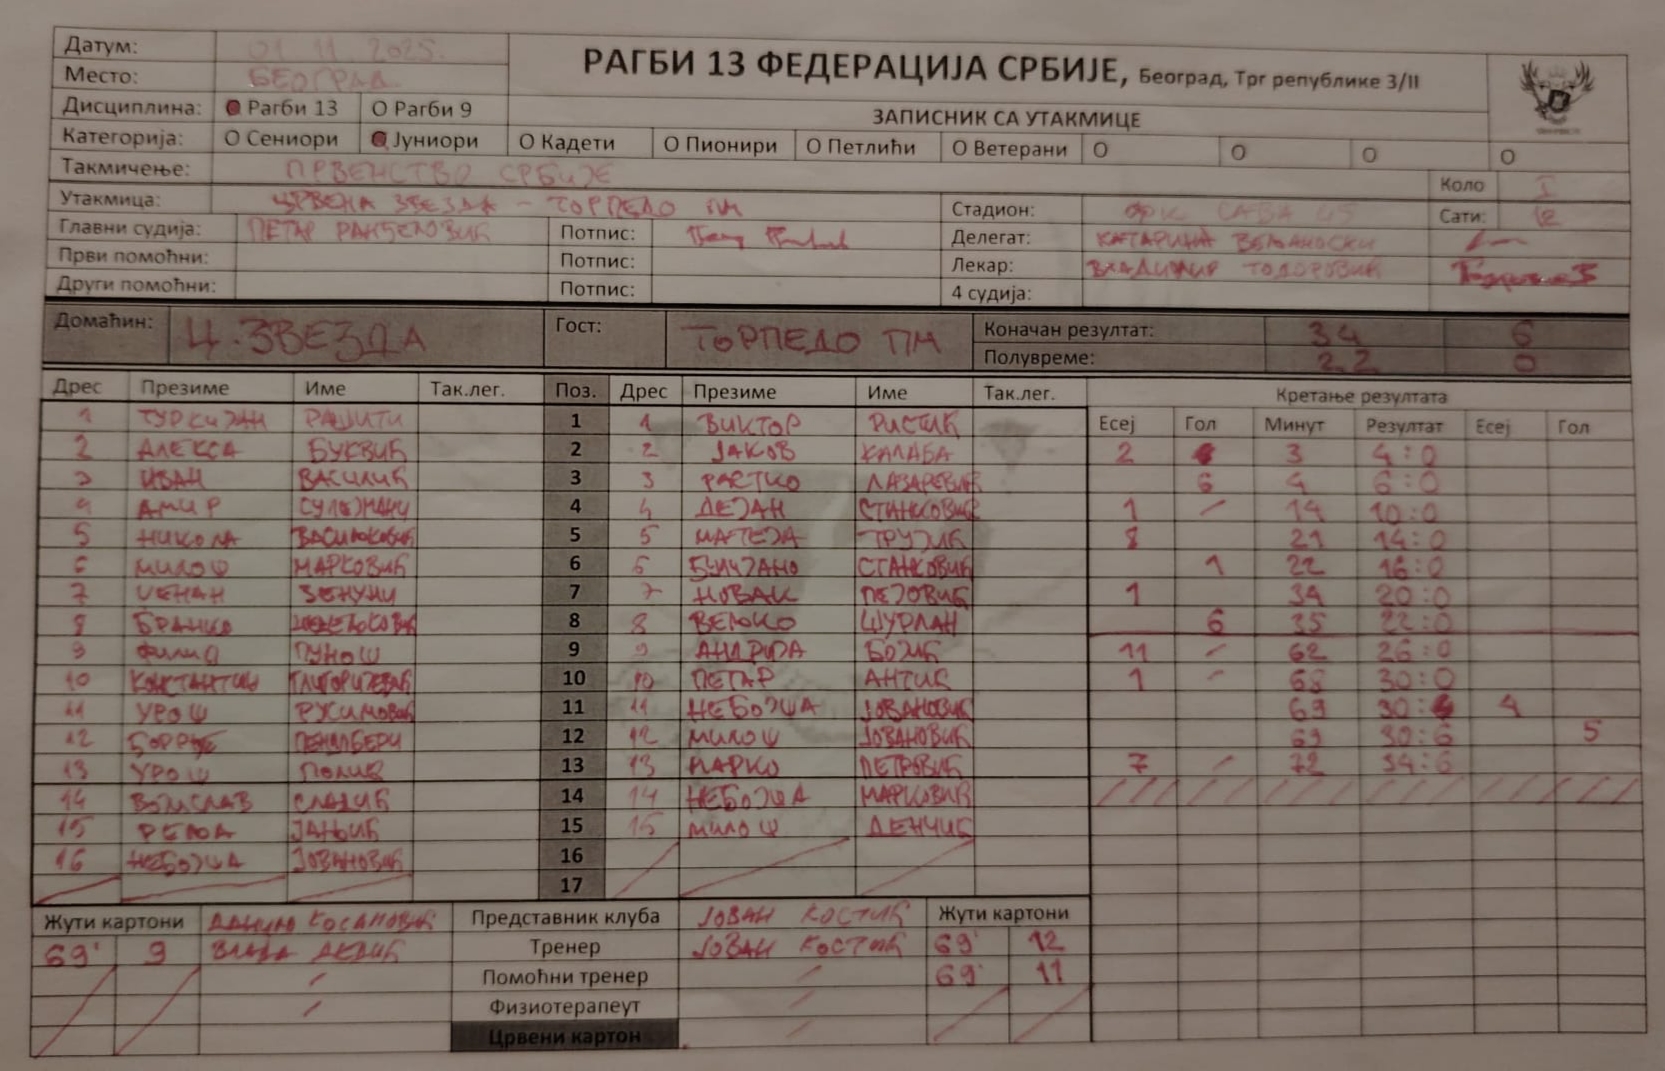 Датум: 01 11. 2025.
Место: БЕОГРАД
РАГБИ 13 ФЕДЕРАЦИЈА СРБИЈЕ, Београд, Трг републике 3/II
Дисциплина: Рагби 13 О Рагби 9
ЗАПИСНИК СА УТАКМИЦЕ
Категорија: О Сениори Јуниори О Кадети О Пионири О Петлићи О Ветерани О О О О
Такмичење: ПРВЕНСТВО СРБИЈЕ Коло I
Утакмица: ЦРВЕНА ЗВЕЗДА - ТОРПЕДО ПМ Стадион: САВА 45 Сати: 12
Главни судија: ПЕТАР РАНЂЕЛОВИЋ Потпис: Делегат: КАТАРИНА ВЕЉАНОСКИ
Први помоћни: Потпис: Лекар: ВЛАДИМИР ТОДОРОВИЋ
Други помоћни: Потпис: 4 судија:
Домаћин: Ц. ЗВЕЗДА Гост: ТОРПЕДО ПМ Коначан резултат: 34 6
Полувреме: 22 0
Дрес Презиме Име Так.лег. Поз. Дрес Презиме Име Так.лег. Кретање резултата
Есеј Гол Минут Резултат Есеј Гол
1 1 1 ВИКТОР РИСТИЋ
2 АЛЕКСА БУКВИЋ 2 2 ЈАКОВ КАЛАБА 2 3 4:0
3 ИВАН ВАСИЛИЋ 3 3 РАСТКО ЛАЗАРЕВИЋ 6 4 6:0
4 АМИР СУЛЕЈМАНИ 4 4 ДЕЈАН СТАНКОВИЋ 1 - 14 10:0
5 НИКОЛА ВАСИЉКОВИЋ 5 5 МАТЕЈА 8 21 14:0
6 МИЛОШ МАРКОВИЋ 6 6 СТАНКОВИЋ 1 22 16:0
7 КЕНАН ЗЕНУНИ 7 7 НОВАК ПЕЈОВИЋ 1 34 20:0
8 БРАНКО 8 8 ВЕЉКО ШУРЛАН 6 35 22:0
9 ФИЛИП ПУНОШ 9 9 АНДРИЈА БОЈИЋ 11 - 62 26:0
10 КОНСТАНТИН ГЛИГОРИЈЕВИЋ 10 10 ПЕТАР АНТИЋ 1 - 68 30:0
11 УРОШ 11 11 НЕБОЈША ЈОВАНОВИЋ 69 30:4 4
12 ЂОРЂЕ 12 12 МИЛОШ ЈОВАНОВИЋ 69 30:6 5
13 УРОШ 13 13 МАРКО ПЕТРОВИЋ 7 - 72 34:6
14 ВОЈИСЛАВ СЛАДИЋ 14 14 НЕБОЈША МАРКОВИЋ
15 РЕЉА ЈАЊИЋ 15 15 МИЛОШ ДЕНЧИЋ
16 НЕБОЈША ЈОВАНОВИЋ 16
17
Жути картони ДАНИЛО КОСАНОВИЋ Представник клуба ЈОВАН КОСТИЋ Жути картони
69' 9 Тренер ЈОВАН КОСТИЋ 69' 12
Помоћни тренер 69' 11
Физиотерапеут
Црвени картон